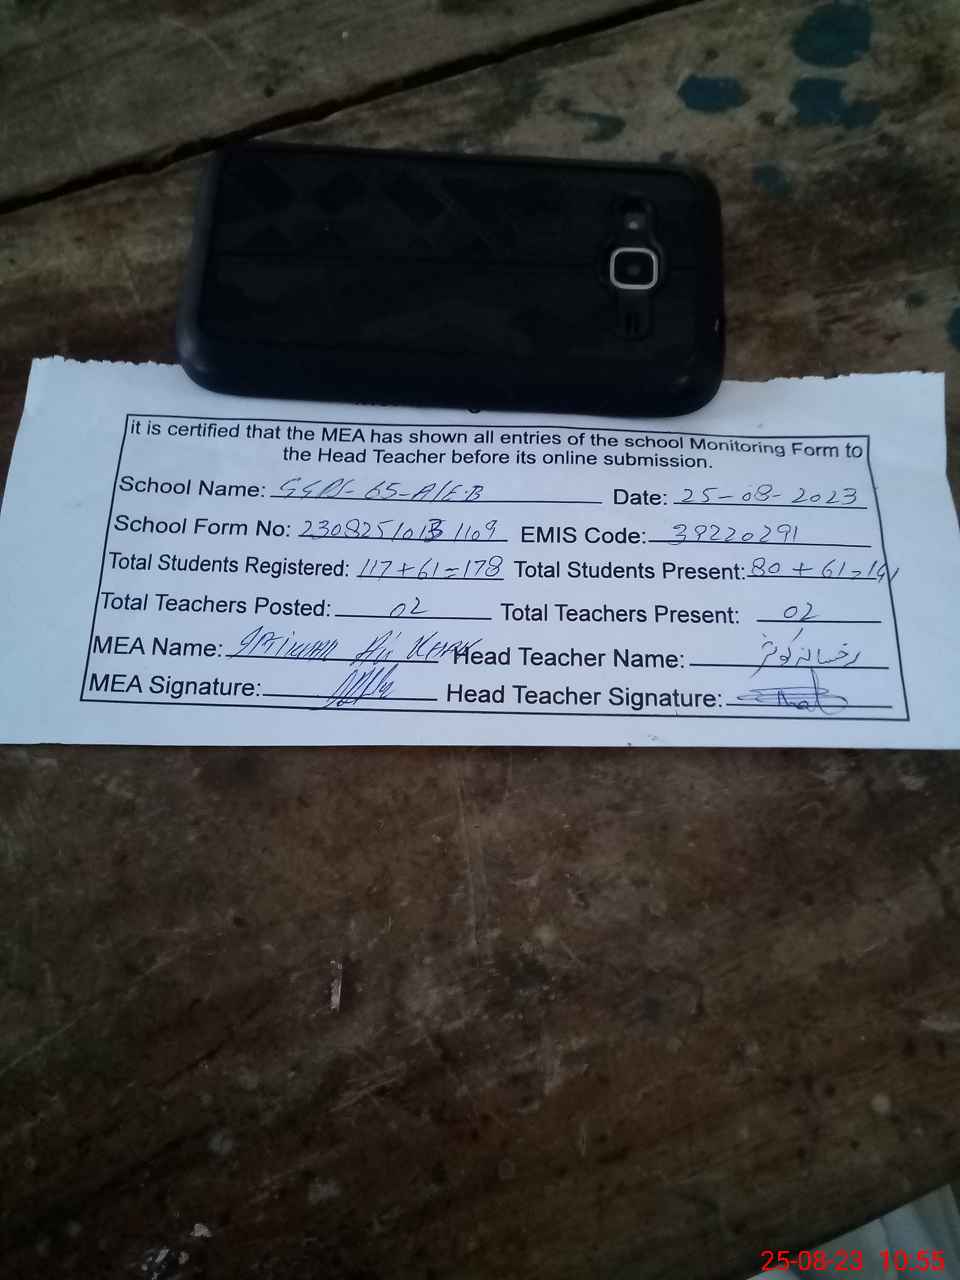 it is certified that the MEA has shown all entries of the school Monitoring Form to
the Head Teacher before its online submission.
School Name: GGPS-65-A/E.B Date: 25-08-2023
School Form No: EMIS Code: 39220291
Total Students Registered: 117+61=178 Total Students Present: 80+61=141
Total Teachers Posted: 02 Total Teachers Present: 02
MEA Name: Head Teacher Name: رخسانہ کوثر
MEA Signature: Head Teacher Signature:
25-08-23 10:55